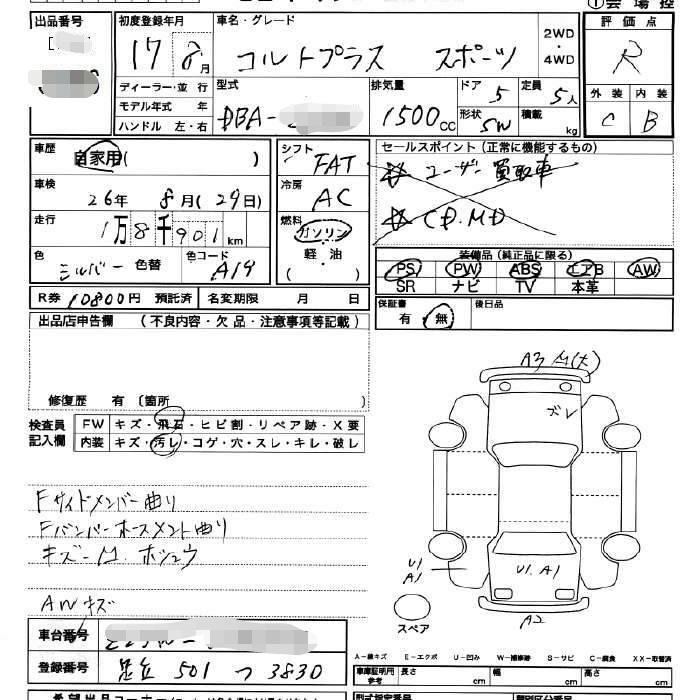 出品番号 初度登録年月 車名・グレード 評価点
17 8月 コルトプラス スポーツ 2WD・4WD R
ディーラー・並行 型式 排気量 ドア 定員 外装 内装
モデル年式 年 DBA- 1500cc 5 5人 C B
ハンドル 左・右 形状 SW 積載 kg
車歴 自家用( ) シフト FAT セールスポイント(正常に機能するもの)
ユーザー買取車
車検 26年 8月(29日) 冷房 AC CD.MD
走行 1万8千901km 燃料 ガソリン
軽油
( )
色 シルバー 色替 色コード A19
装備品(純正品に限る)
PS PW ABS エアB AW
SR ナビ TV 本革
R券 10800円 預託済 名変期限 月 日
保証書 有 無 後日品
出品店申告欄 (不良内容・欠品・注意事項等記載)
修復歴 有 〔箇所 〕
検査員記入欄 FW キズ・飛石・ヒビ割・リペア跡・X要
内装 キズ・汚レ・コゲ・穴・スレ・キレ・破レ
Fサイドメンバー曲り
Fバンパーホースメント曲り
キズ-M. ホシュウ
AWキズ
A3 M(大)
ズレ
U1 A1
U1. A1
A2
スペア
車台番号
登録番号 足立 501 つ 3830
A-線キズ E-エクボ U-凹み W-補修跡 S-サビ C-腐食 XX-取替済
車庫証明用参考 長さ cm 幅 cm 高さ cm